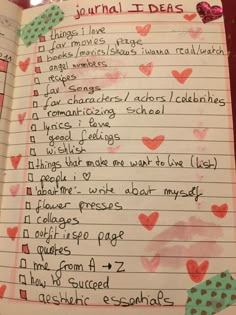 journal IDEAS
things i love
fav movies page
books/movies/shows i wanna read/watch
angel numbers
recipes
fav songs
fav characters/actors/celebrities
romanticizing school
lyrics i love
good feelings
wishlist
things that make me want to live (list)
people i ♡
"about me" - write about myself
flower presses
collages
outfit inspo page
quotes
me from A → Z
how to succeed
aesthetic essentials